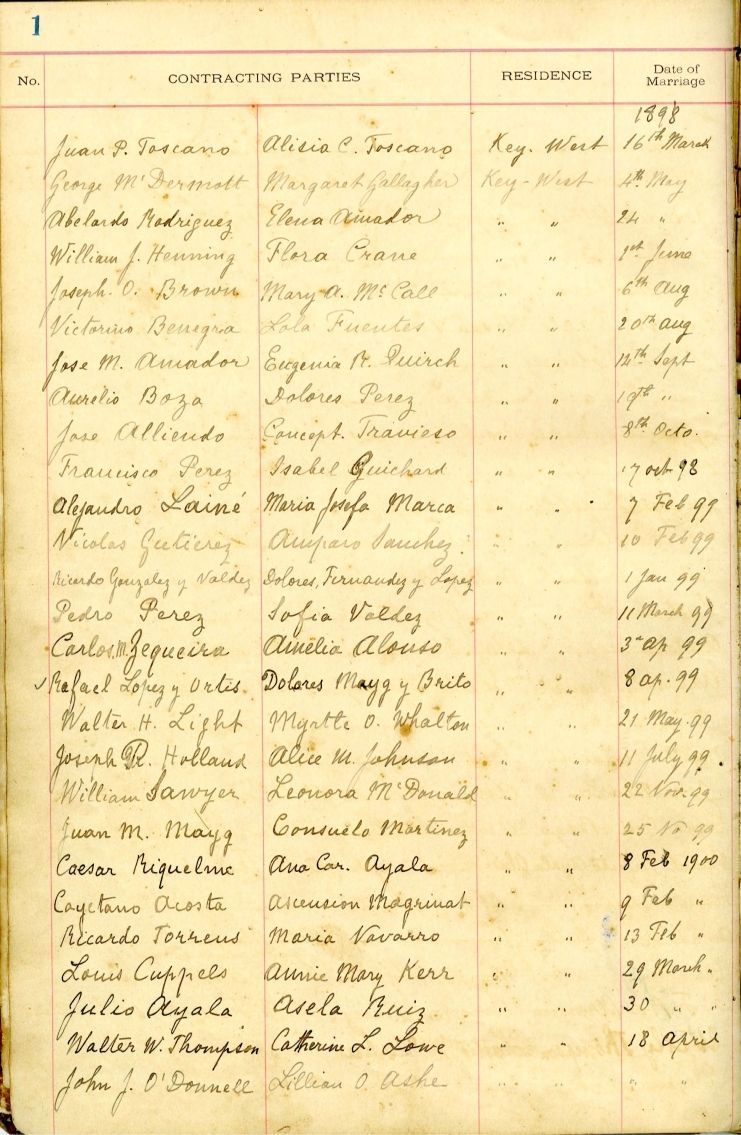 1
No. CONTRACTING PARTIES RESIDENCE Date of Marriage
1898
Juan P. Toscano Alisia C. Toscano Key. West 16th March
George McDermott Margaret Gallagher Key-West 4th May
Abelardo Rodriguez Elena Amador " " 24 "
William J. Henning Flora Crane " " 1st June
Joseph. O. Brown Mary A. McCall " " 6th Aug
Victorino Benegra Lola Fuentes " " 20th aug
Jose M. Amador Eugenia R. Quirch " " 12th Sept
Aurelio Bozo Dolores Perez " " 19th "
Jose Alliendo Concept. Travieso " " 8th Octo.
Francisco Perez Isabel Guichard " " 17 oct 98
Alejandro Lainé Maria Josefa Marca " " 7 Feb 99
Nicolas Gutierez Amparo Sanchez " " 10 Feb 99
Ricardo Gonzalez y Valdez Dolores, Fernandez y Lopez " " 1 Jan 99
Pedro Perez Sofia Valdez " " 11 March 99
Carlos. M. Zequeira Amelia Alonso " " 3r ap. 99
Rafael Lopez y Ortis Dolores Mayg y Brito " " 8 ap. 99
Walter H. Light Myrtte O. Whalton " " 21 May. 99
Joseph R. Holland Alice M. Johnson " " 11 July 99
William Sawyer Leonora McDonald " " 22 Nov. 99
Juan M. Mayg Consuelo Martinez " " 25 No 99
Caesar Riquelme Ana Car. Ayala " " 8 Feb 1900
Cayetano Acosta Ascension Magrinat " " 9 Feb "
Ricardo Torrens Maria Navarro " " 13 Feb "
Louis Cuppels Annie Mary Kerr " " 29 March "
Julio Ayala Asela Ruiz " " 30 " "
Walter W. Thompson Catherine L. Lowe " " 18 April
John J. O'Donnell Lillian O. Ashe " " " "